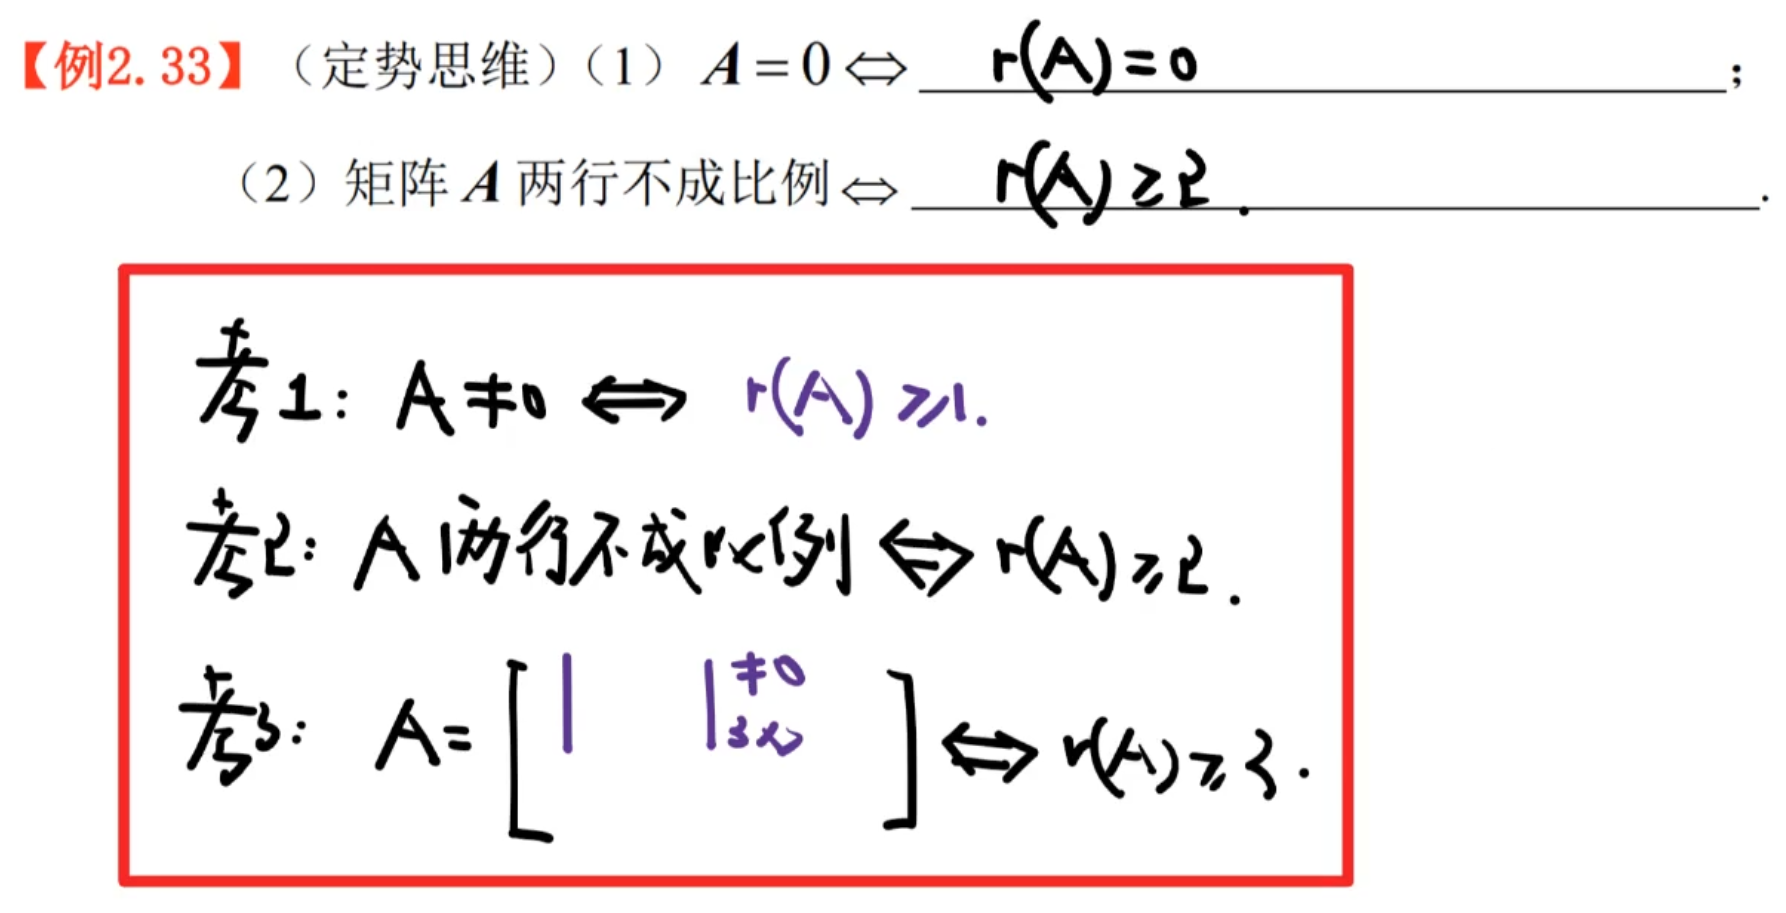 【例2.33】（定势思维）（1） A=0⇔ r(A)=0 ；
（2）矩阵 A 两行不成比例⇔ r(A)≥2. .
考1: A≠0 ⇔ r(A)≥1.
考2: A 两行不成比例 ⇔ r(A)≥2.
考3: A=[ | |≠0 3阶 ] ⇔ r(A)≥3.